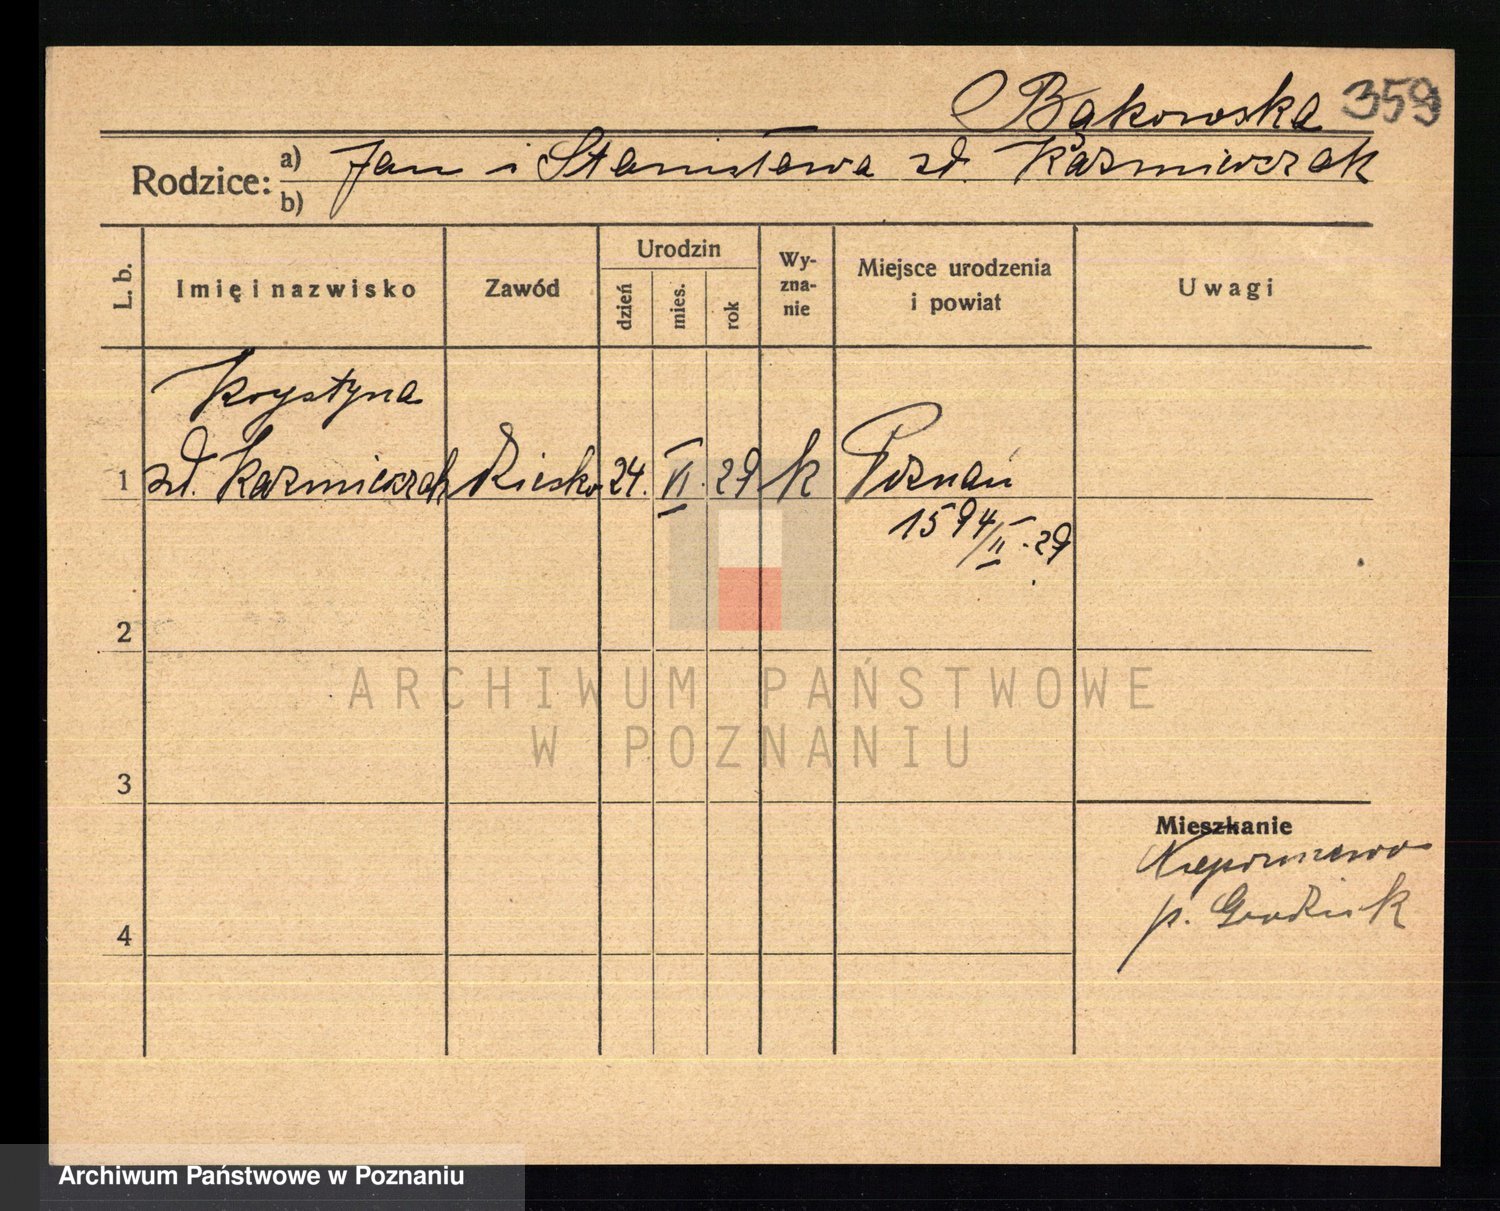 Bąkowska 359
Rodzice: a) Jan i Stanisława zd. Kaźmierczak
b)
L. b.
Imię i nazwisko
Zawód
Urodzin
dzień
mies.
rok
Wy-
zna-
nie
Miejsce urodzenia
i powiat
Uwagi
Krystyna
1 zd. Kaźmierczak
24. VI. 29 k Poznań
1594/II.29
2
ARCHIWUM PAŃSTWOWE
W POZNANIU
3
Mieszkanie
p. Grodzisk
4
Archiwum Państwowe w Poznaniu